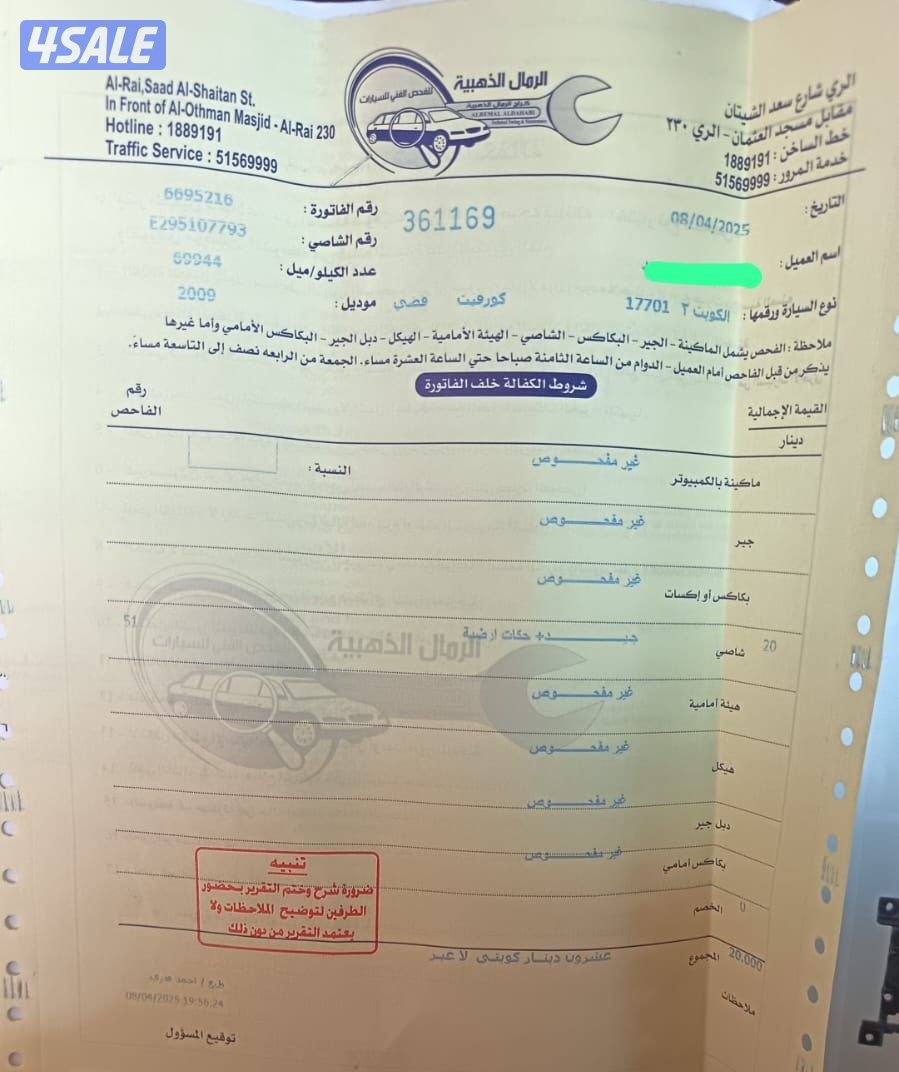 4SALE
Al-Rai,Saad Al-Shaitan St.
In Front of Al-Othman Masjid - Al-Rai 230
Hotline : 1889191
Traffic Service : 51569999
الرمال الذهبية
للفحص الفني للسيارات
كراج الرمال الذهبية
ALREMAL ALDAHABI
Technical Testing & Maintenance
الري شارع سعد الشيتان
مقابل مسجد العثمان - الري ٢٣٠
خط الساخن : 1889191
خدمة المرور : 51569999
التاريخ : 08/04/2025
361169
رقم الفاتورة : 6695216
رقم الشاصي : E295107793
اسم العميل :
عدد الكيلو/ميل : 69944
نوع السيارة ورقمها : الكويت ٢ 17701 كورفيت فضي
موديل : 2009
ملاحظة : الفحص يشمل الماكينة - الجير - البكاكس - الشاصي - الهيئة الأمامية - الهيكل - دبل الجير - البكاكس الأمامي وأما غيرها
يذكر من قبل الفاحص أمام العميل - الدوام من الساعة الثامنة صباحا حتي الساعة العشرة مساء. الجمعة من الرابعه نصف إلى التاسعة مساء.
شروط الكفالة خلف الفاتورة
القيمة الإجمالية
دينار
رقم
الفاحص
ماكينة بالكمبيوتر غير مفحـــوص النسبة :
جير غير مفحـــوص
بكاكس أو إكسات غير مفحـــوص
20 شاصي جيـــد+ حكات ارضية 51
هيئة أمامية غير مفحـــوص
هيكل غير مفحـــوص
دبل جير غير مفحـــوص
بكاكس امامي غير مفحـــوص
0 الخصم
20.000 المجموع عشرون دينار كويتى لا غير
تنبيه
ضرورة شرح وختم التقرير بحضور
الطرفين لتوضيح الملاحظات ولا
يعتمد التقرير من دون ذلك
ملاحظات
طبع / احمد
08/04/2025 19:56:24
توقيع المسؤول
الرمال الذهبية
للفحص الفني للسيارات